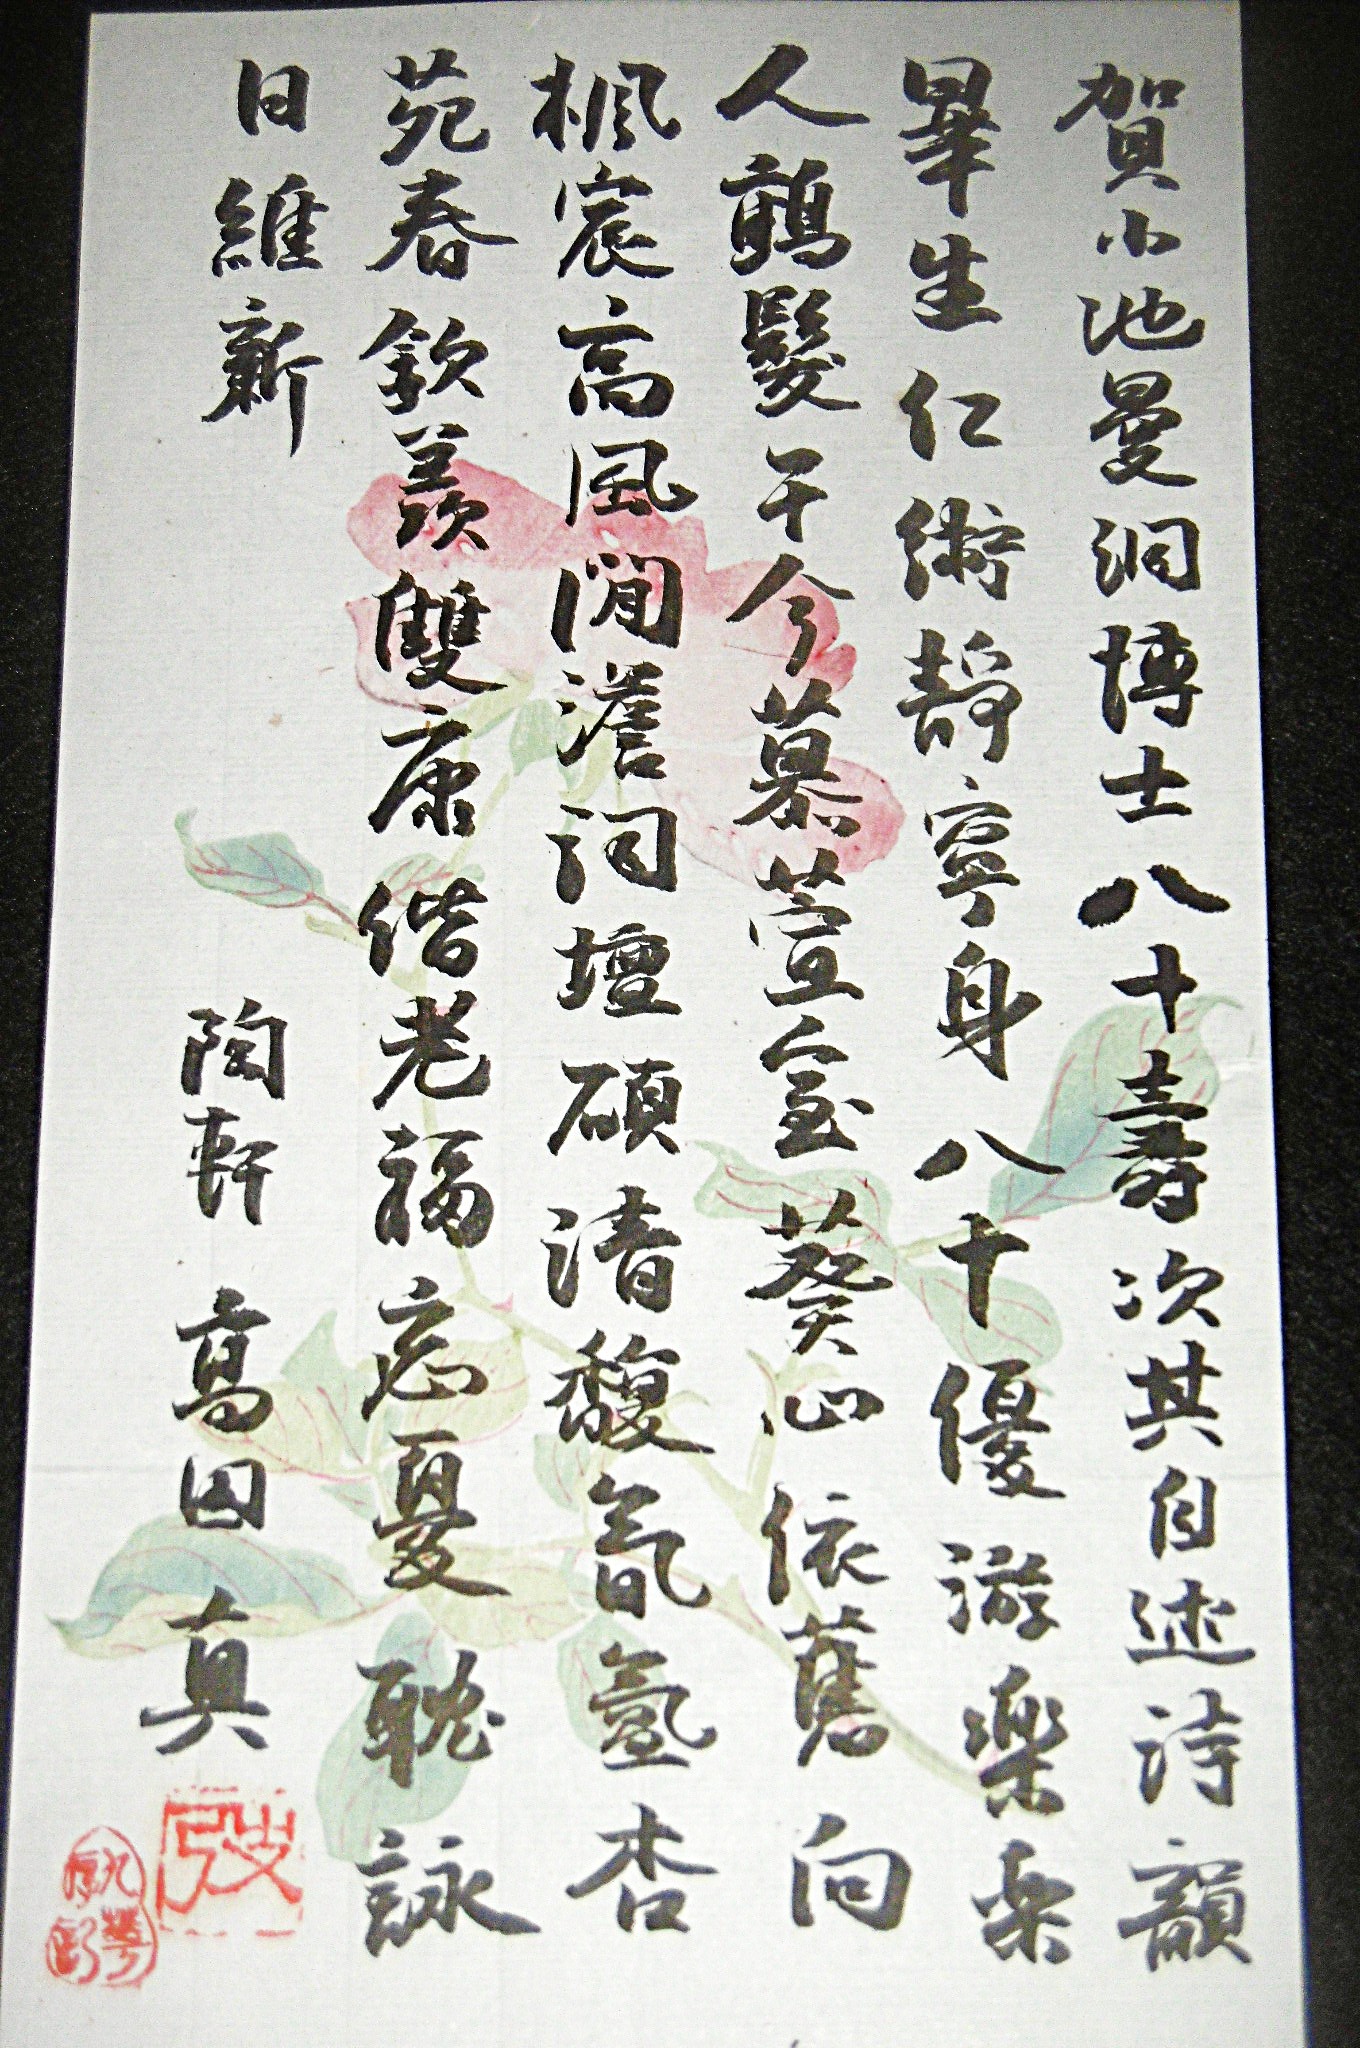 賀小池曼洞博士八十壽次其自述詩韻
畢生仁術靜寧身八十優游樂楽
人鶴髮于今慕萱室葵心依舊向
楓宸高風閒澹詞壇碩清馥氤氳杏
苑春欽羨雙康偕老福忘憂耽詠
日維新
陶軒 高田真